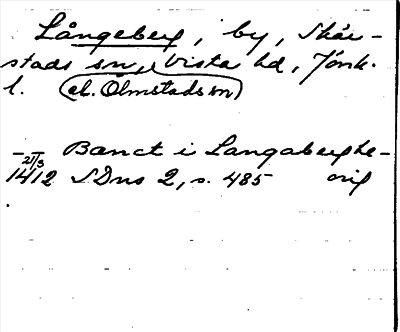 Långeberg, by, Skär-
stads sn, Vista hd, Jönk.
l. (el. Ölmstads sn)
Banct i Langaberghe -
21/3
1412 SDns 2, s. 485 orig